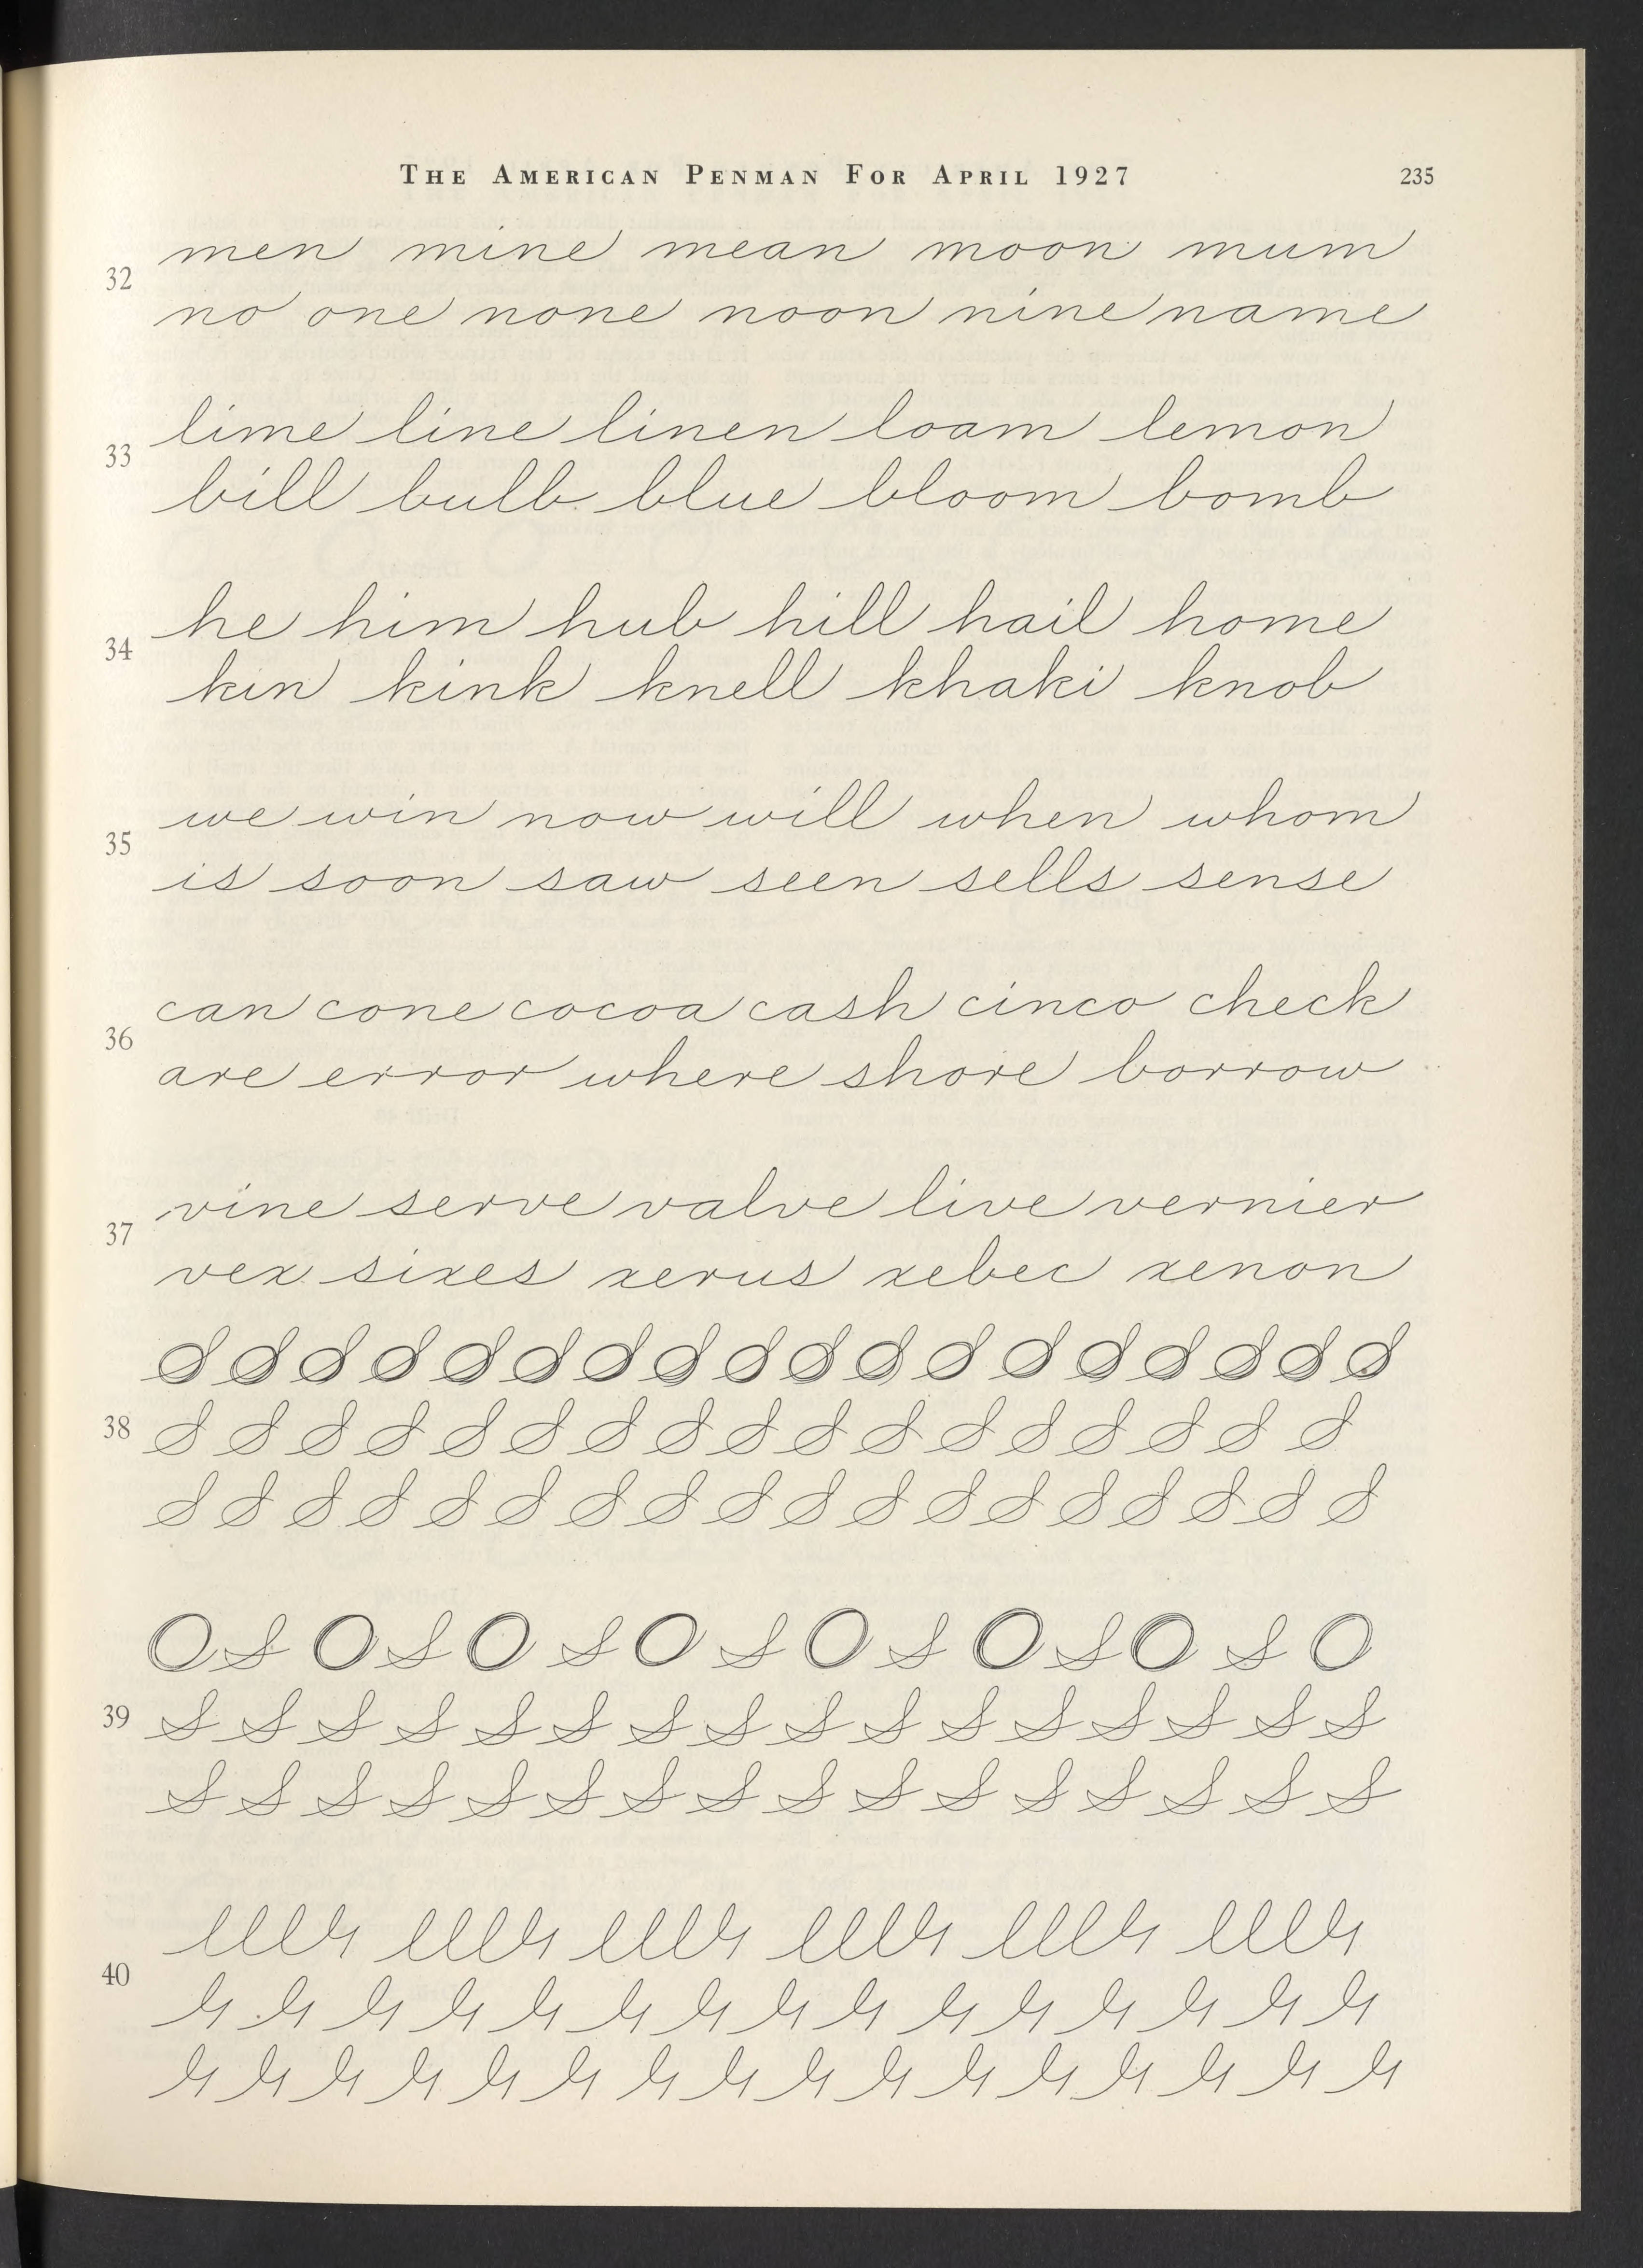 THE AMERICAN PENMAN FOR APRIL 1927 235
men mine mean moon mum
32
no one none noon nine name
lime line linen loam lemon
33
bill bulb blue bloom bomb
he him hub hill hail home
34
kin kink knell khaki knob
we win now will when whom
35
is soon saw seen sells sense
can cone cocoa cash cinco check
36
are error where shore borrow
vine serve valve live vernier
37
vex sixes xerus xebec xenon
38
O S O S O S O S O S O S O S O
39 S S S S S S S S S S S S S S S S
S S S S S S S S S S S S S S S S
40